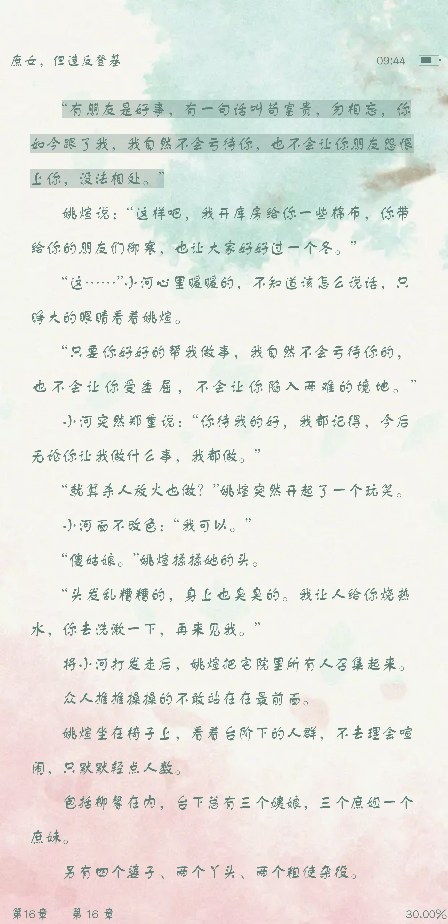 庶女，但造反登基
09:44
“有朋友是好事，有一句话叫苟富贵，勿相忘，你
如今跟了我，我自然不会亏待你，也不会让你朋友怨恨
上你，没法相处。”
姚煊说：“这样吧，我开库房给你一些棉布，你带
给你的朋友们御寒，也让大家好好过一个冬。”
“这……”小河心里暖暖的，不知道该怎么说话，只
睁大的眼睛看着姚煊。
“只要你好好的帮我做事，我自然不会亏待你的，
也不会让你受委屈，不会让你陷入两难的境地。”
小河突然郑重说：“你待我的好，我都记得，今后
无论你让我做什么事，我都做。”
“就算杀人放火也做？”姚煊突然开起了一个玩笑。
小河面不改色：“我可以。”
“傻姑娘。”姚煊揉揉她的头。
“头发乱糟糟的，身上也臭臭的。我让人给你烧热
水，你去洗漱一下，再来见我。”
将小河打发走后，姚煊把宅院里所有人召集起来。
众人推推搡搡的不敢站在在最前面。
姚煊坐在椅子上，看着台阶下的人群，不去理会喧
闹，只默默轻点人数。
包括柳馨在内，台下总有三个姨娘，三个庶姐一个
庶妹。
另有四个婆子、两个丫头、两个粗使杂役。
第16章 第 16 章
30.00%